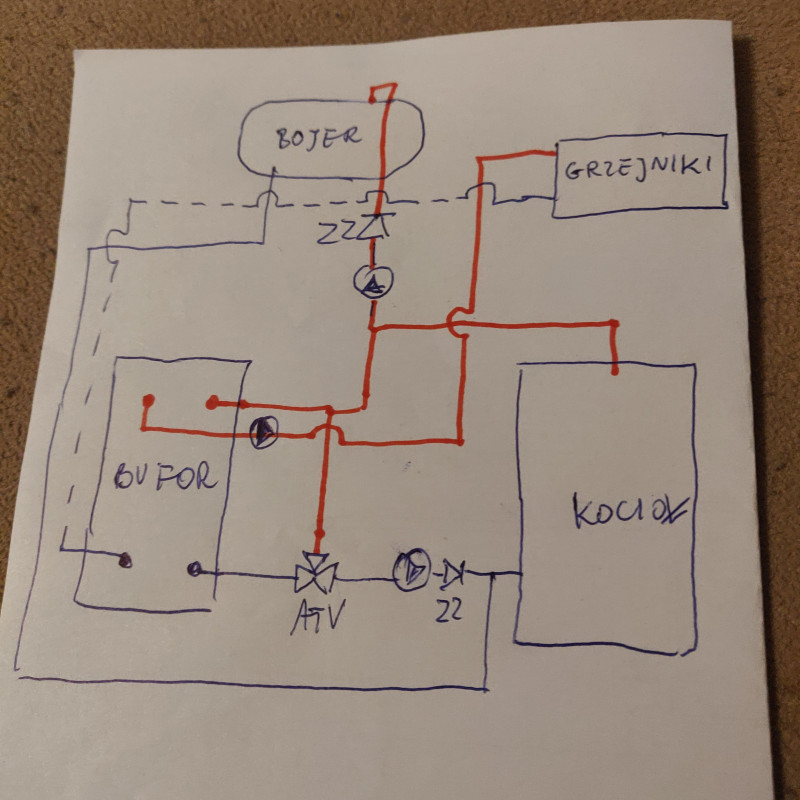 BOJER
GRZEJNIKI
ZZ
BUFOR
KOCIOŁ
ATV
ZZ